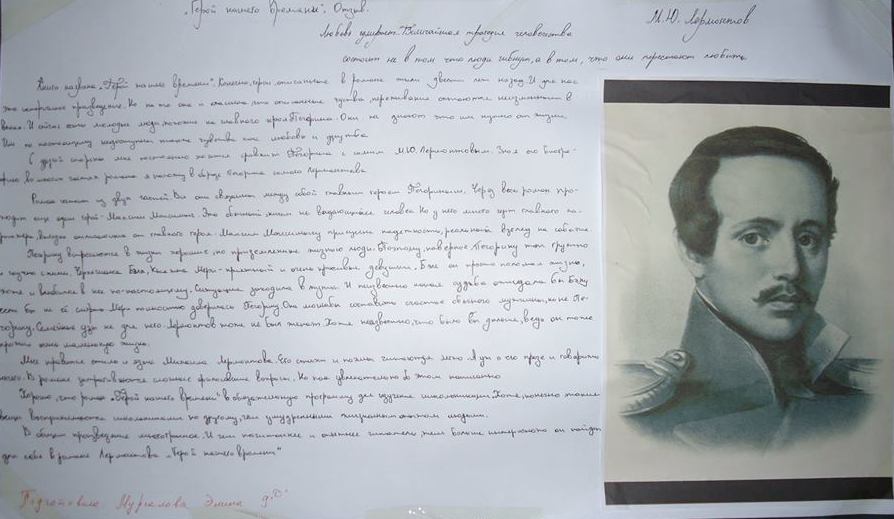 „Герой нашего времени". Отзыв.
М.Ю. Лермонтов
Любовь умирает. Величайшая трагедия человечества
состоит не в том что люди гибнут, а в том, что они перестают любить
Книга названа „Герой нашего времени". Конечно, герои, описанные в романе жили двести лет назад. И для нас
это историческое произведение. Но на то она и классика, что описанные чувства, переживания остаются неизменными в
веках. И сейчас есть молодые люди, похожие на главного героя Печорина. Они не знают что им нужно от жизни.
Им по настоящему недоступны такие чувства как любовь и дружба
С другой стороны мне постоянно хочется сравнить Печорина с самим М.Ю. Лермонтовым. Зная его биогра-
фию во многих частях романа я нахожу в образе Печорина самого Лермонтова.
Роман состоит из двух частей. Все они связаны между собой главным героем Печориным. Через весь роман про-
ходит еще один герой - Максим Максимыч. Это обычный ничем не выдающийся человек. Но у него много черт главного
отличающие от главного героя. Максиму Максимычу присущи надежность, реальный взгляд на события.
Печорину встречаются в жизни хорошие, но приземленные жизнью люди. Поэтому, наверное Печорину так грустно
и скучно с ними. Черкешенка Бэла, Княжна Мери - приятные и очень красивые девушки. Бэле он просто поломал жизнь,
хоть и влюбился в нее по-настоящему. Ситуация заходила в тупик. И неизвестно какая судьба ожидала бы Бэлу
если бы не её смерть. Мери полностью доверилась Печорину. Она могла бы составить счастье обычного мужчины, но не Пе-
чорину. Семейные узы не для него. Лермонтов тоже не был женат. Хотя неизвестно, что было бы дальше, ведь он тоже
прожил очень маленькую жизнь.
Мне нравится стиль и язык Михаила Лермонтова. Его стихи и поэмы читаются легко. А уж о его прозе и говорить
нечего. В романе затрагиваются сложные философские вопросы. Но как увлекательно об этом написано
Хорошо, что роман „Герой нашего времени" в обязательную программу для изучения школьниками. Хотя, конечно такие
вещи воспринимаются школьниками по другому, чем умудренными жизненным опытом людьми.
В общем произведение многогранное. И чем начитаннее и опытнее читатель, тем больше интересного он найдет
для себя в романе Лермонтова „Герой нашего времени"
Подготовила: Мурсалова Элина 9„